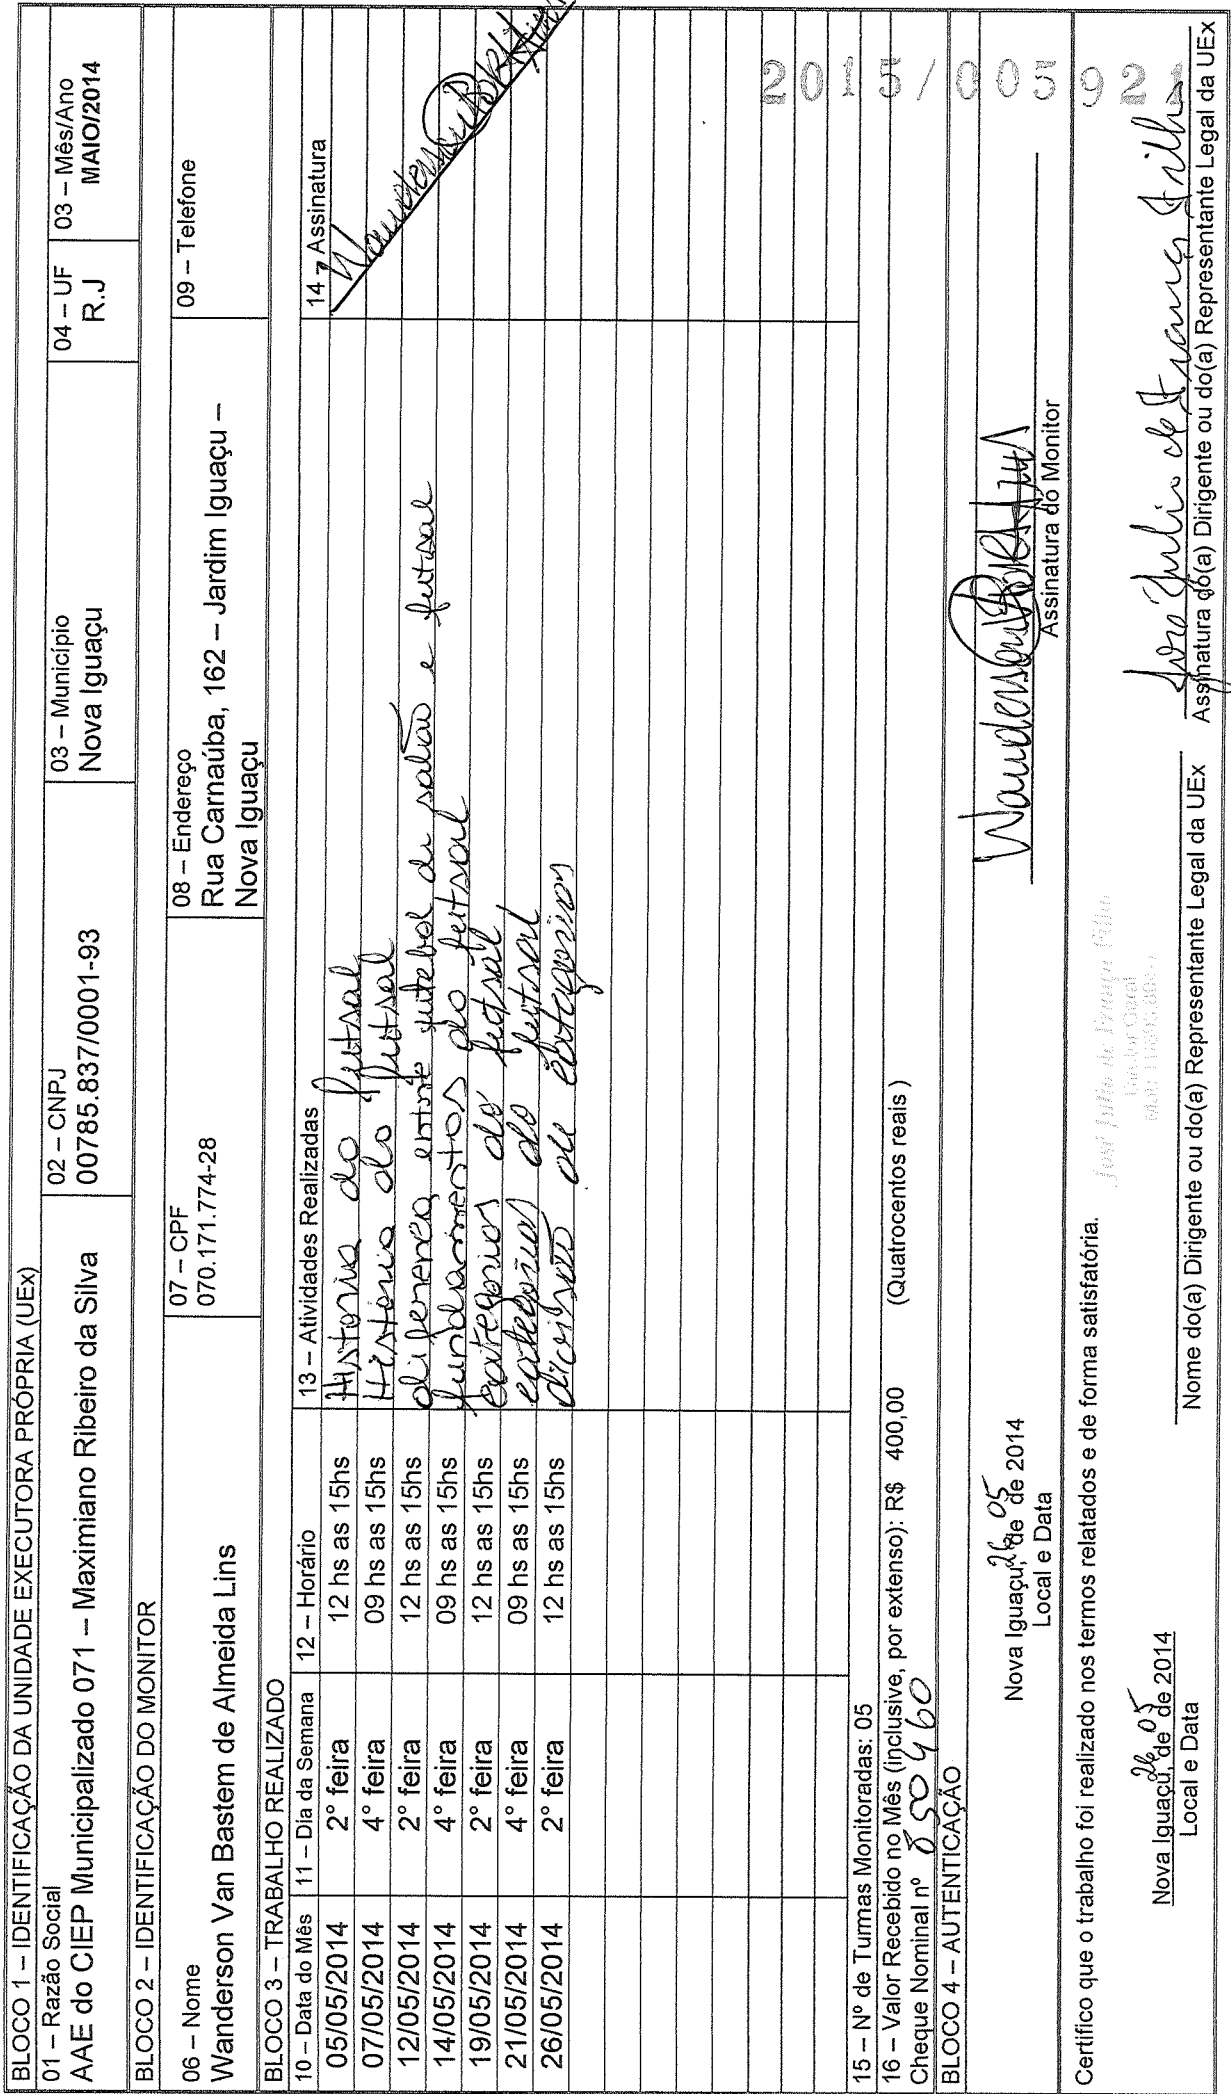 BLOCO 1 – IDENTIFICAÇÃO DA UNIDADE EXECUTORA PRÓPRIA (UEx)
01 – Razão Social
AAE do CIEP Municipalizado 071 – Maximiano Ribeiro da Silva
02 – CNPJ
00785.837/0001-93
03 – Município
Nova Iguaçu
04 – UF
R.J
03 – Mês/Ano
MAIO/2014
BLOCO 2 – IDENTIFICAÇÃO DO MONITOR
06 – Nome
Wanderson Van Bastem de Almeida Lins
07 – CPF
070.171.774-28
08 – Endereço
Rua Carnaúba, 162 – Jardim Iguaçu –
Nova Iguaçu
09 – Telefone
BLOCO 3 – TRABALHO REALIZADO
10 – Data do Mês 11 – Dia da Semana 12 – Horário 13 – Atividades Realizadas 14 – Assinatura
05/05/2014 2° feira 12 hs as 15hs Historia do futsal
07/05/2014 4° feira 09 hs as 15hs Historia do futsal
12/05/2014 2° feira 12 hs as 15hs diferença entre futebol de salão e futsal
14/05/2014 4° feira 09 hs as 15hs fundamentos do futsal
19/05/2014 2° feira 12 hs as 15hs categorias do futsal
21/05/2014 4° feira 09 hs as 15hs categorias do futsal
26/05/2014 2° feira 12 hs as 15hs divisão de categorias
15 – Nº de Turmas Monitoradas: 05
16 – Valor Recebido no Mês (inclusive, por extenso): R$ 400,00 (Quatrocentos reais )
Cheque Nominal nº 850460
BLOCO 4 – AUTENTICAÇÃO
Nova Iguaçu, 26 de 05 de 2014
Local e Data
Assinatura do Monitor
2015/005921
Certifico que o trabalho foi realizado nos termos relatados e de forma satisfatória.
José Julio de França Filho
Diretor Geral
Nova Iguaçu, 26 de 05 de 2014
Local e Data
Nome do(a) Dirigente ou do(a) Representante Legal da UEx
José Julio de França Filho
Assinatura do(a) Dirigente ou do(a) Representante Legal da UEx